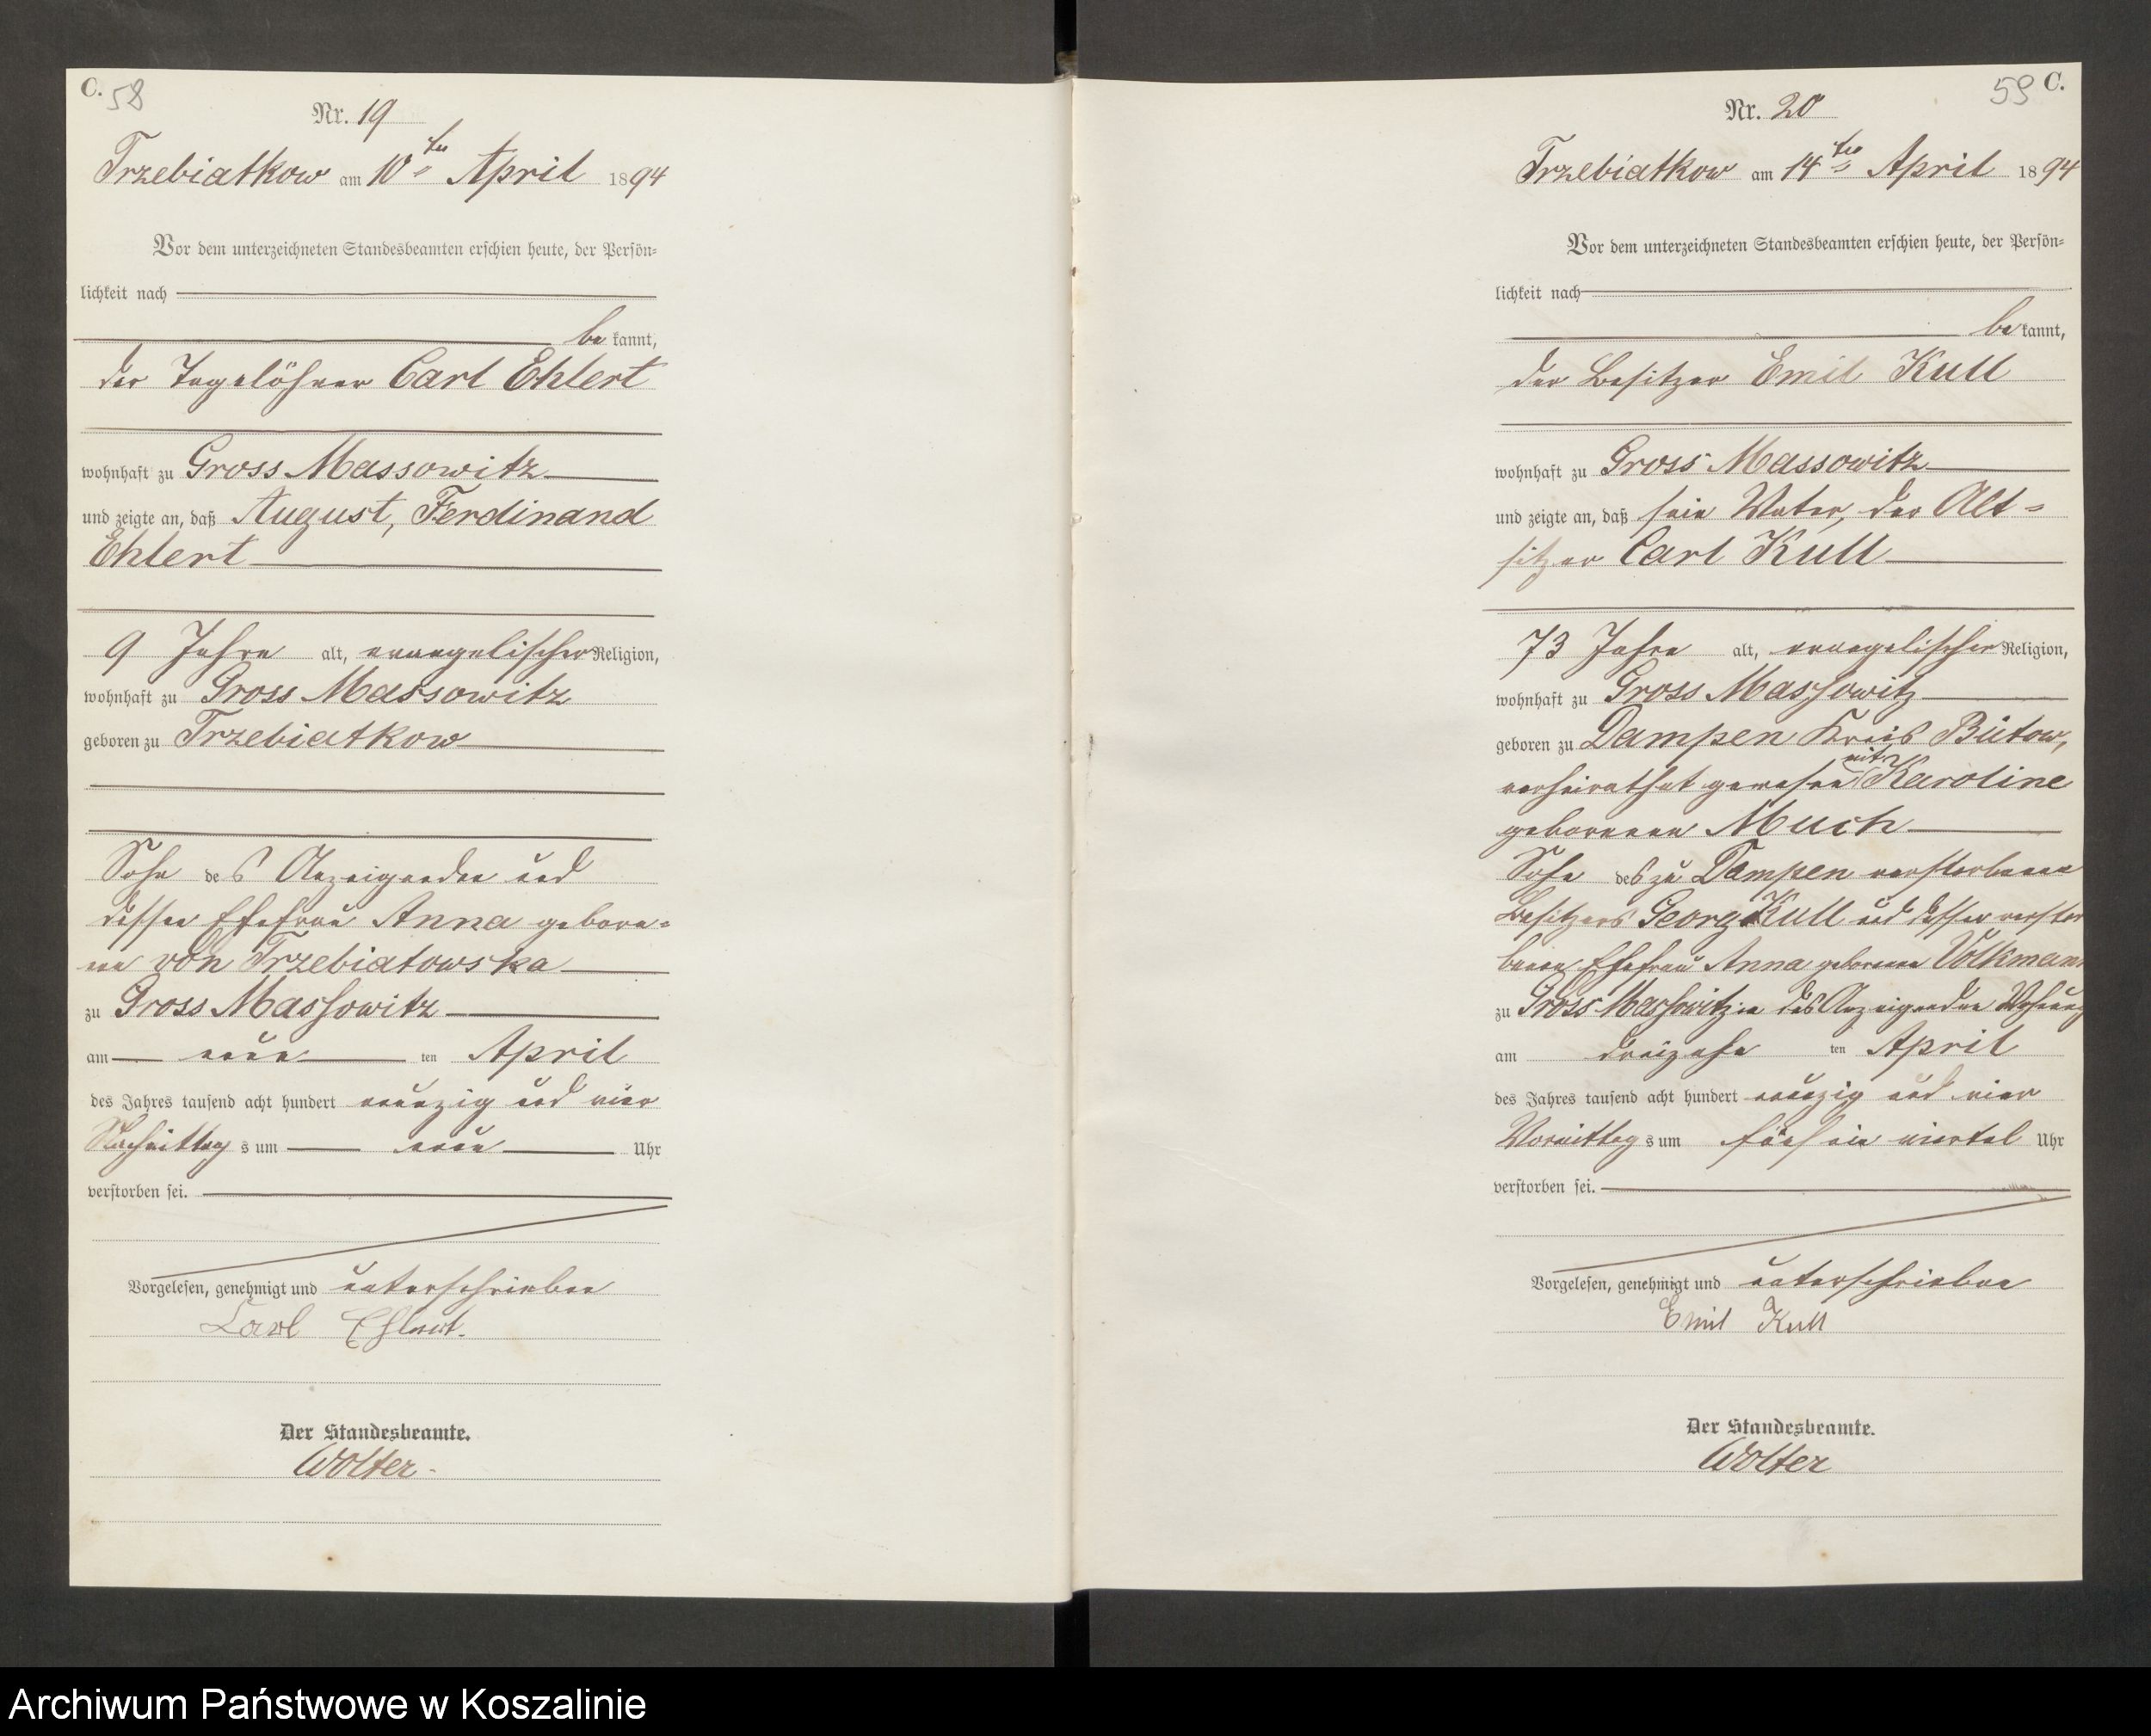 C. 58
Nr. 19
Trzebiatkow am 10ten April 1894
Vor dem unterzeichneten Standesbeamten erschien heute, der Persön-
lichkeit nach
be kannt,
der Tagelöhner Carl Ehlert
wohnhaft zu Gross Massowitz
und zeigte an, daß August, Ferdinand
Ehlert
9 Jahre alt, evangelischer Religion,
wohnhaft zu Gross Massowitz
geboren zu Trzebiatkow
Sohn des Anzeigenden und
dessen Ehefrau Anna gebore-
nen von Trzebiatowska
zu Gross Massowitz
am neun ten April
des Jahres tausend acht hundert neunzig und vier
Nachmittag s um neun Uhr
verstorben sei.
Vorgelesen, genehmigt und unterschrieben
Carl Ehlert.
Der Standesbeamte.
Wolter.
59 C.
Nr. 20
Trzebiatkow am 14ten April 1894
Vor dem unterzeichneten Standesbeamten erschien heute, der Persön-
lichkeit nach
be kannt,
der Besitzer Emil Kull
wohnhaft zu Gross Massowitz
und zeigte an, daß sein Vater, der Alt-
sitzer Carl Kull
73 Jahre alt, evangelischer Religion,
wohnhaft zu Gross Massowitz
geboren zu Dampen Kreis Bütow,
verheirathet gewesen mit Karoline
geborenen Much
Sohn des zu Dampen verstorbenen
Besitzers Georg Kull und dessen verstor
benen Ehefrau Anna geborenen Volkmann
zu Gross Massowitz in des Anzeigenden Wohnung
am dreizehn ten April
des Jahres tausend acht hundert neunzig und vier
Vormittag s um fünf ein viertel Uhr
verstorben sei.
Vorgelesen, genehmigt und unterschrieben
Emil Kull
Der Standesbeamte.
Wolter
Archiwum Państwowe w Koszalinie